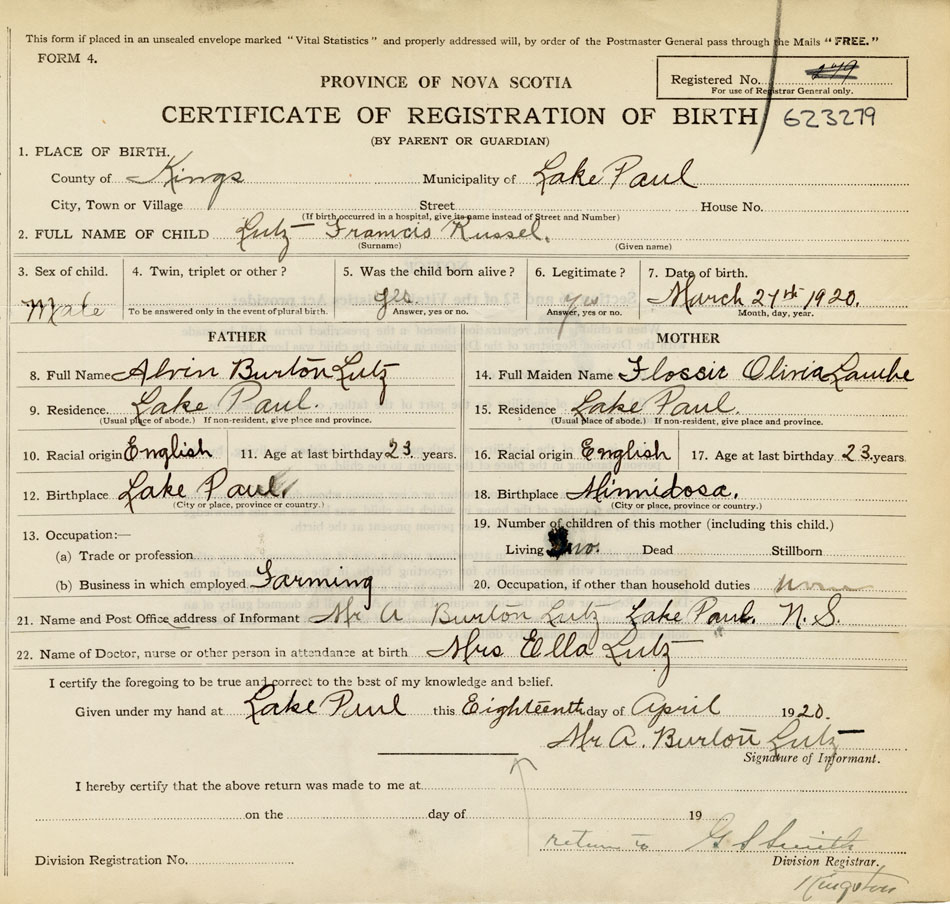 This form if placed in an unsealed envelope marked "Vital Statistics" and properly addressed will, by order of the Postmaster General pass through the Mails "FREE."
FORM 4.
PROVINCE OF NOVA SCOTIA
Registered No. 279
For use of Registrar General only.
CERTIFICATE OF REGISTRATION OF BIRTH 623279
(BY PARENT OR GUARDIAN)
1. PLACE OF BIRTH.
County of Kings Municipality of Lake Paul
City, Town or Village Street House No.
(If birth occurred in a hospital, give its name instead of Street and Number)
2. FULL NAME OF CHILD Lutz Francis Russel.
(Surname) (Given name)
3. Sex of child. 4. Twin, triplet or other? 5. Was the child born alive? 6. Legitimate? 7. Date of birth.
Male yes. yes March 27th 1920.
To be answered only in the event of plural birth. Answer, yes or no. Answer, yes or no. Month, day, year.
FATHER MOTHER
8. Full Name Alvin Burton Lutz 14. Full Maiden Name Flossie Olivia Lambe
9. Residence. Lake Paul. 15. Residence Lake Paul.
(Usual place of abode.) If non-resident, give place and province. (Usual place of abode.) If non-resident, give place and province.
10. Racial origin English 11. Age at last birthday 23. years. 16. Racial origin English 17. Age at last birthday 23. years
12. Birthplace Lake Paul. 18. Birthplace Minnidosa.
(City or place, province or country.) (City or place, province or country.)
13. Occupation:— 19. Number of children of this mother (including this child.)
(a) Trade or profession Living Two. Dead Stillborn
(b) Business in which employed Farming 20. Occupation, if other than household duties none
21. Name and Post Office address of Informant Mr A Burton Lutz Lake Paul. N.S.
22. Name of Doctor, nurse or other person in attendance at birth Mrs Ella Lutz
I certify the foregoing to be true and correct to the best of my knowledge and belief.
Given under my hand at Lake Paul this Eighteenth day of April 1920.
Mr A. Burton Lutz
Signature of Informant.
I hereby certify that the above return was made to me at
on the day of 19
return to G S Smith
Division Registration No. Division Registrar.
Kingston